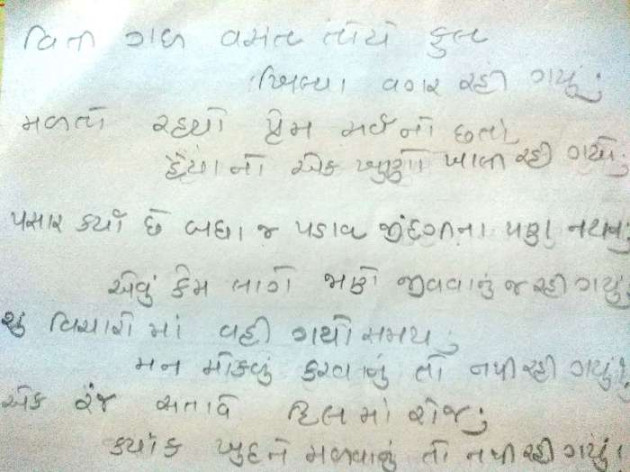 વિતી ગઈ વસંત તોયે ફુલ
ખિલ્યા વગર રહી ગયું;
મળતો રહયો પ્રેમ સર્વ નો છતાં
હૈયા નો એક ખુણો ખાલી રહી ગયો;
પસાર કર્યા છે બધા જ પડાવ જીંદગીના પણ નયન;
એવું કેમ લાગે જાણે જીવવાનું જ રહી ગયું;
શું વિચારો માં વહી ગયો સમય;
મન મોકળું કરવાનું તો નથી રહી ગયું!
એક રંજ સતાવે દિલ માં રોજ;
કયાંક ખુદને મળવાનું તો નથી રહી ગયું!